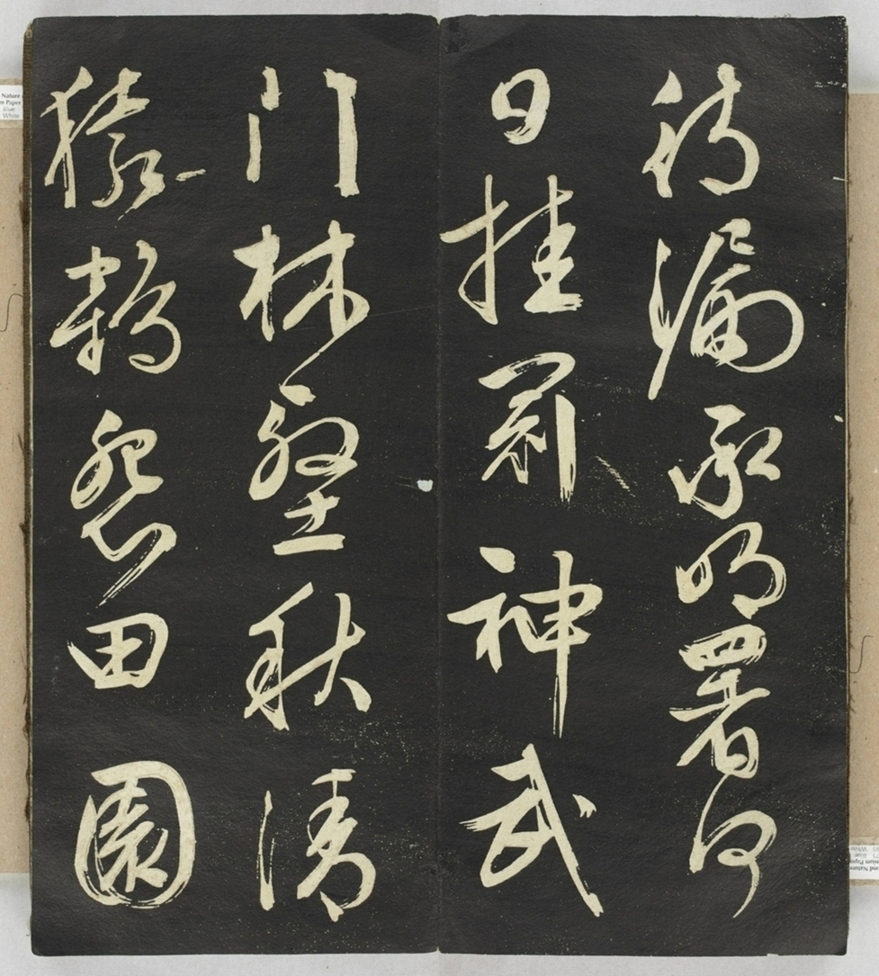 待漏承明署何
日挂冠神武
門林壑秋清
猿鶴怨田園